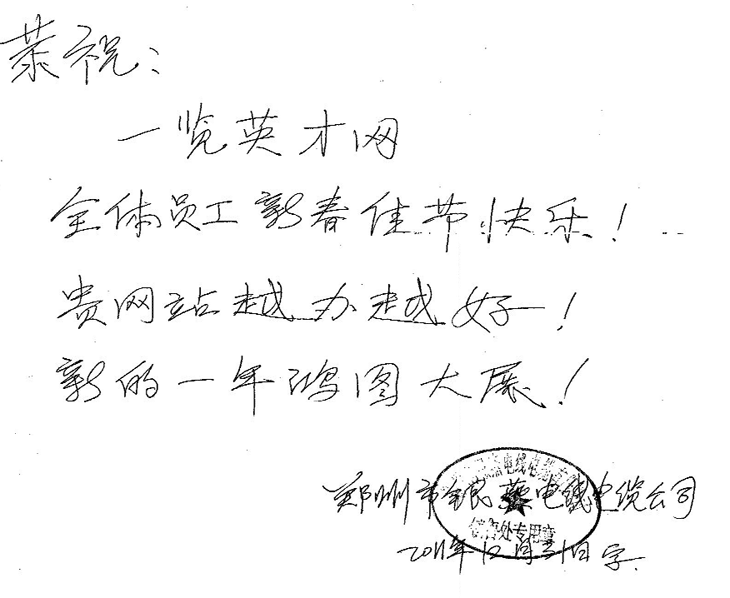 恭祝：
一览英才网
全体员工新春佳节快乐！
贵网站越办越好！
新的一年鸿图大展！
郑州市全民电线电缆公司
电线电缆
处专用章
2011年12月31日字.